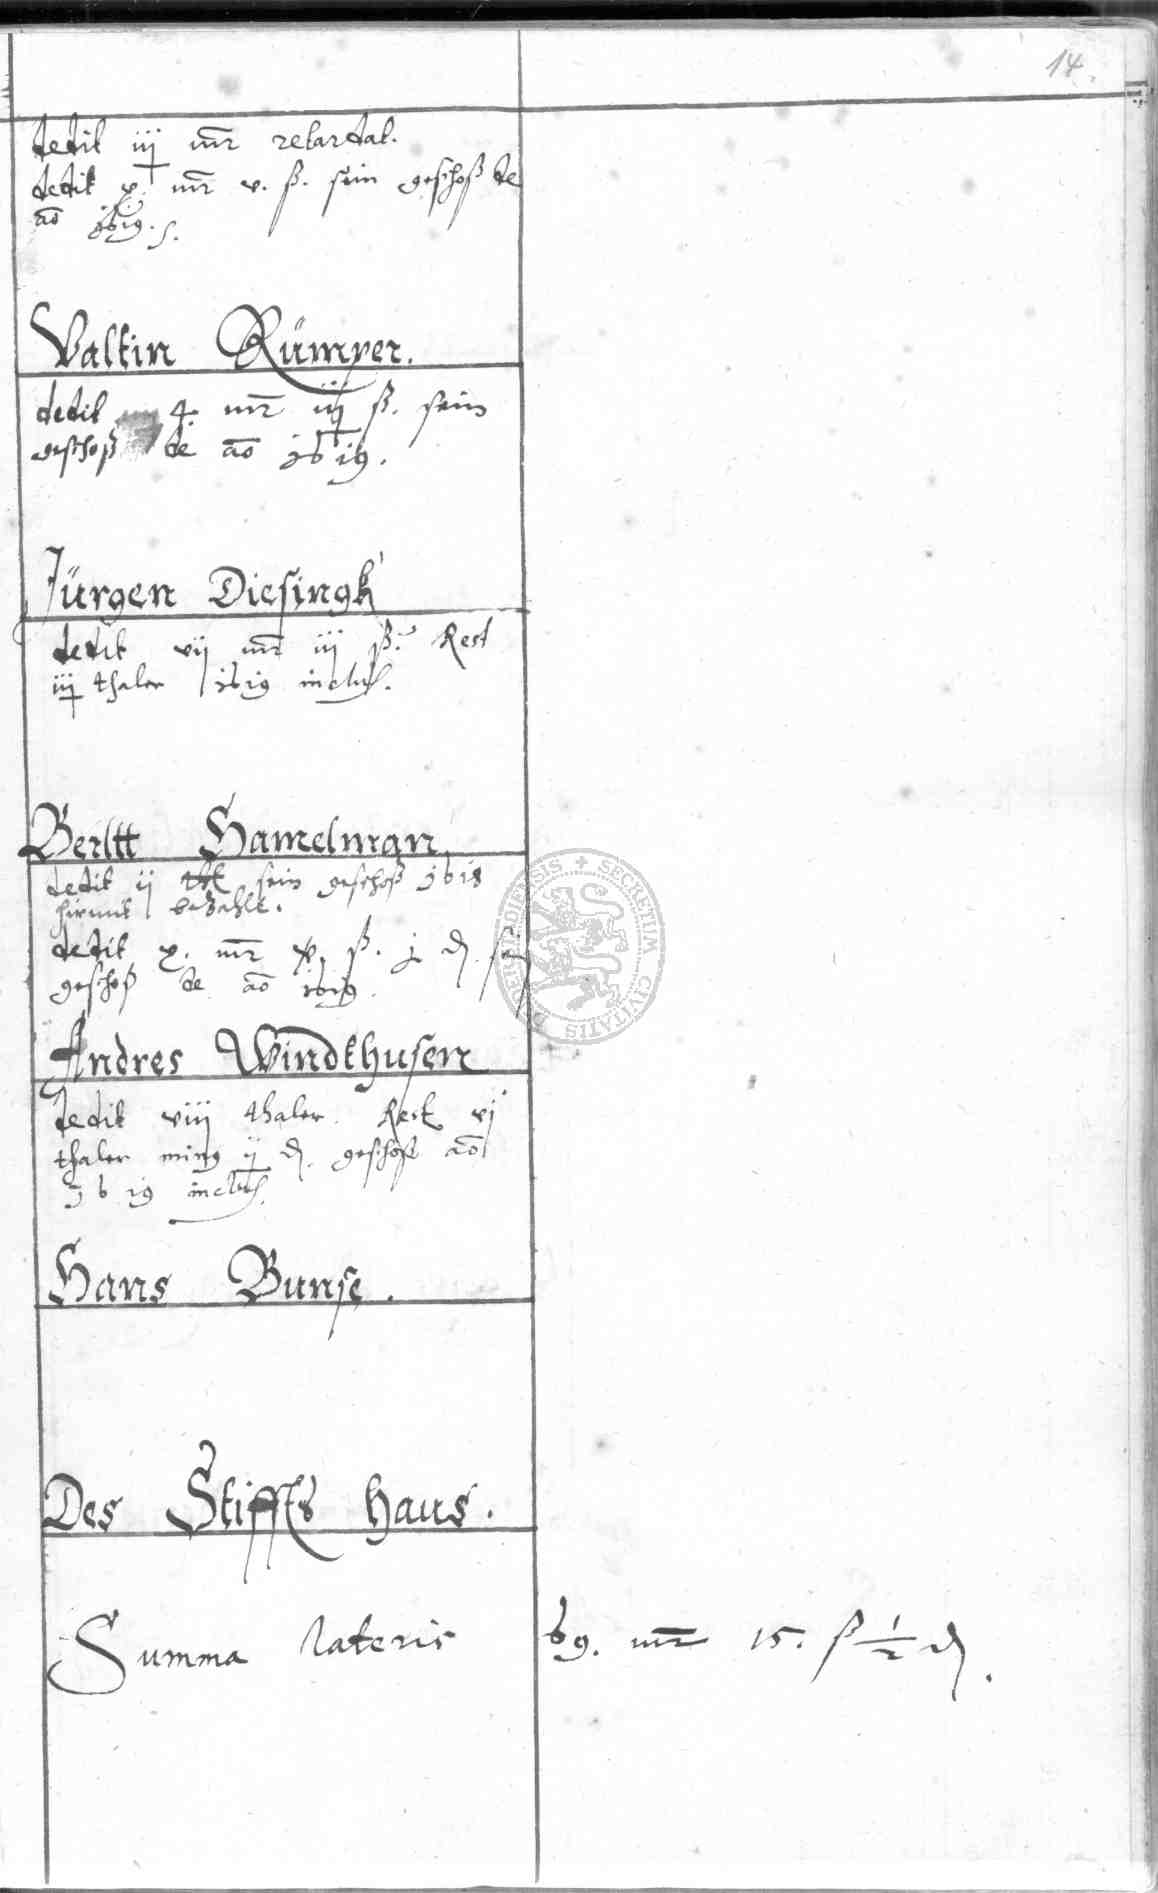 14.
dedit iij mr retardat.
dedit x mr v. ß. sein geschoß de
ao 1619.
Valtin Rümper.
dedit 4 mr iij ß. sein
geschoß de ao 1619.
Jürgen Diesingk
dedit vij mr iij ß. Rest
iij thaler 1619 inclus.
Berltt Hamelman
dedit ij sein geschoß 1618
hirmit bezahlt.
dedit x. mr ß. j d.
geschoß de ao 1619
Andres Windthusen
dedit viij thaler Rest vj
thaler ming ij d. geschoß ao
1619 inclus.
Hans Bunse.
Des Stiffts Haus.
Summa lateris 69. mr 15. ß 1/2 d.
SECRETUM CIVITATIS